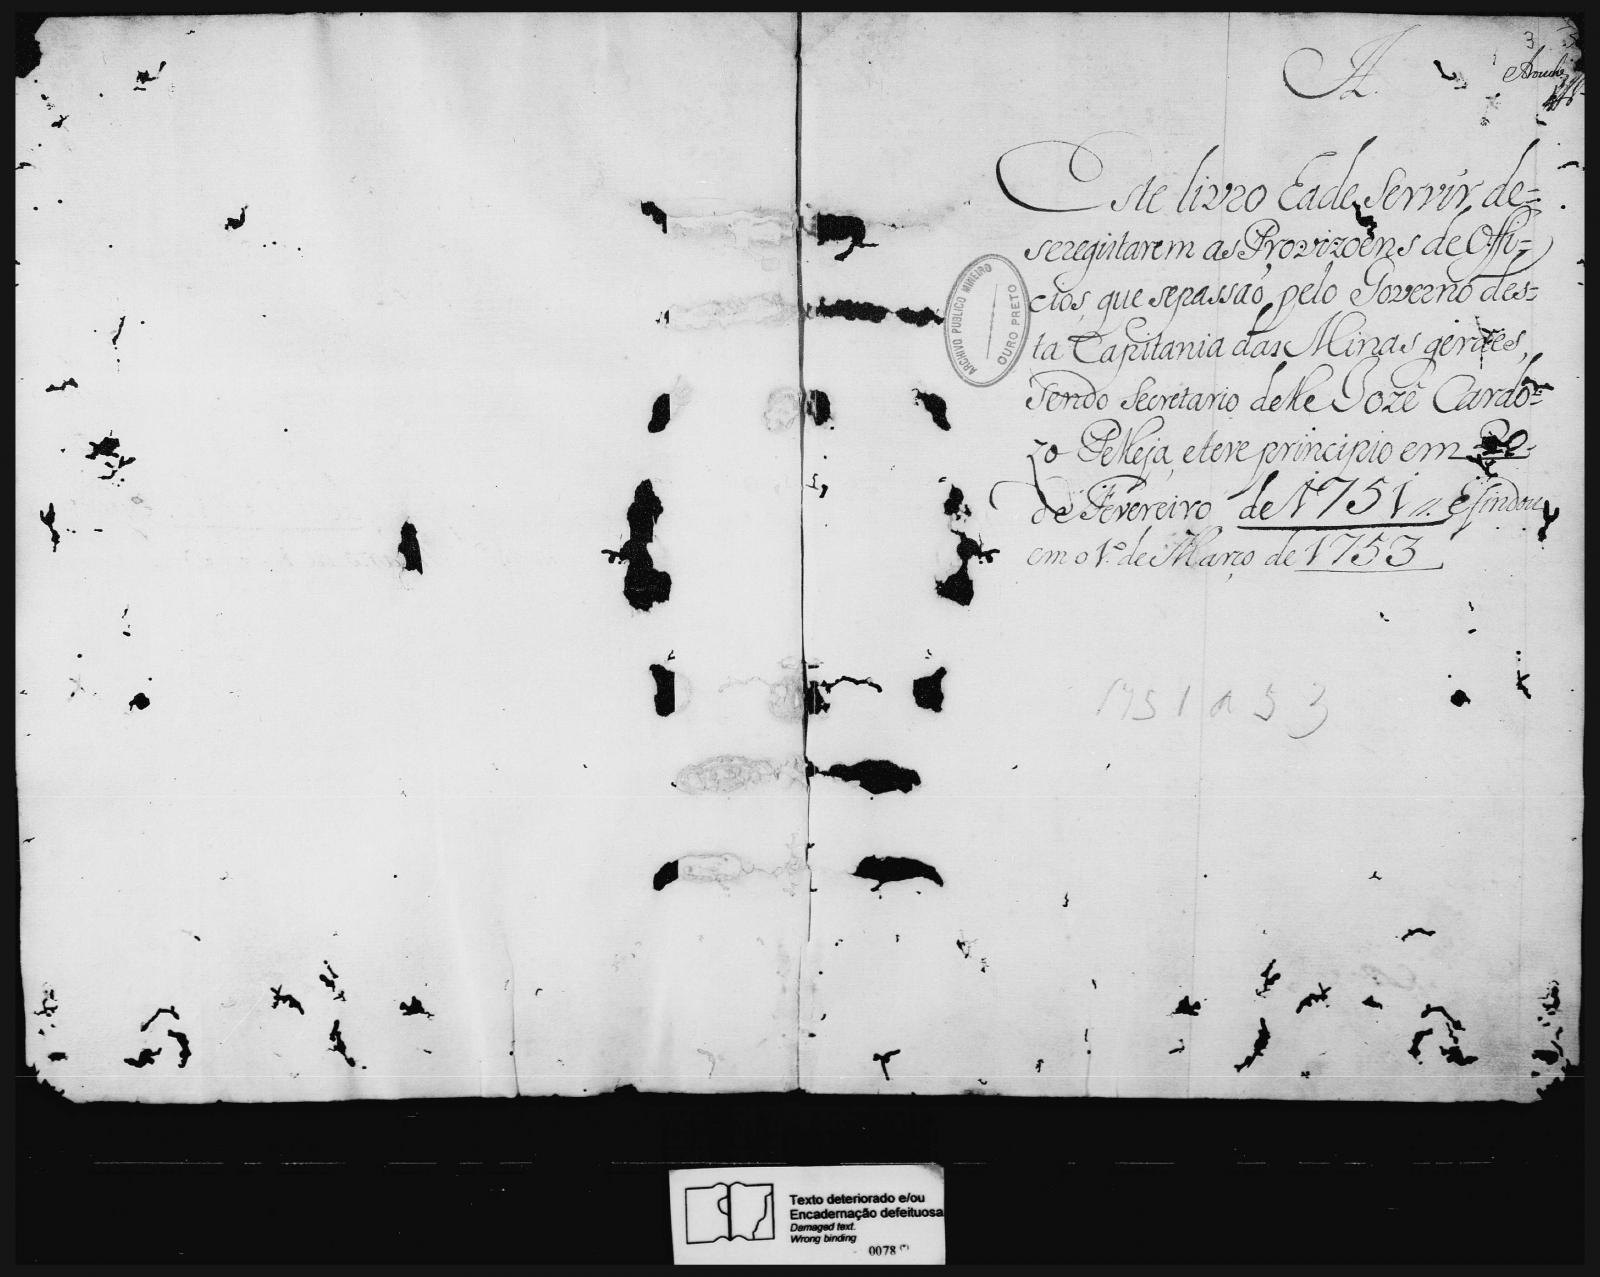 3
A.
Este livro Eade Servir de=
seregistarem as Provizoens de Offi=
cios, que sepassaõ, pelo Governo des=
ta Capitania das Minas geraes,
Sendo Secretario delle Jozê Cardo=
zo Pelleja, eteve principio em 20
de Fevereiro de 1751 // Efindou
em o 1.º de Março de 1753
ARCHIVO PUBLICO MINEIRO
OURO PRETO
1751 a 53
Texto deteriorado e/ou
Encadernação defeituosa
Damaged text.
Wrong binding
0078